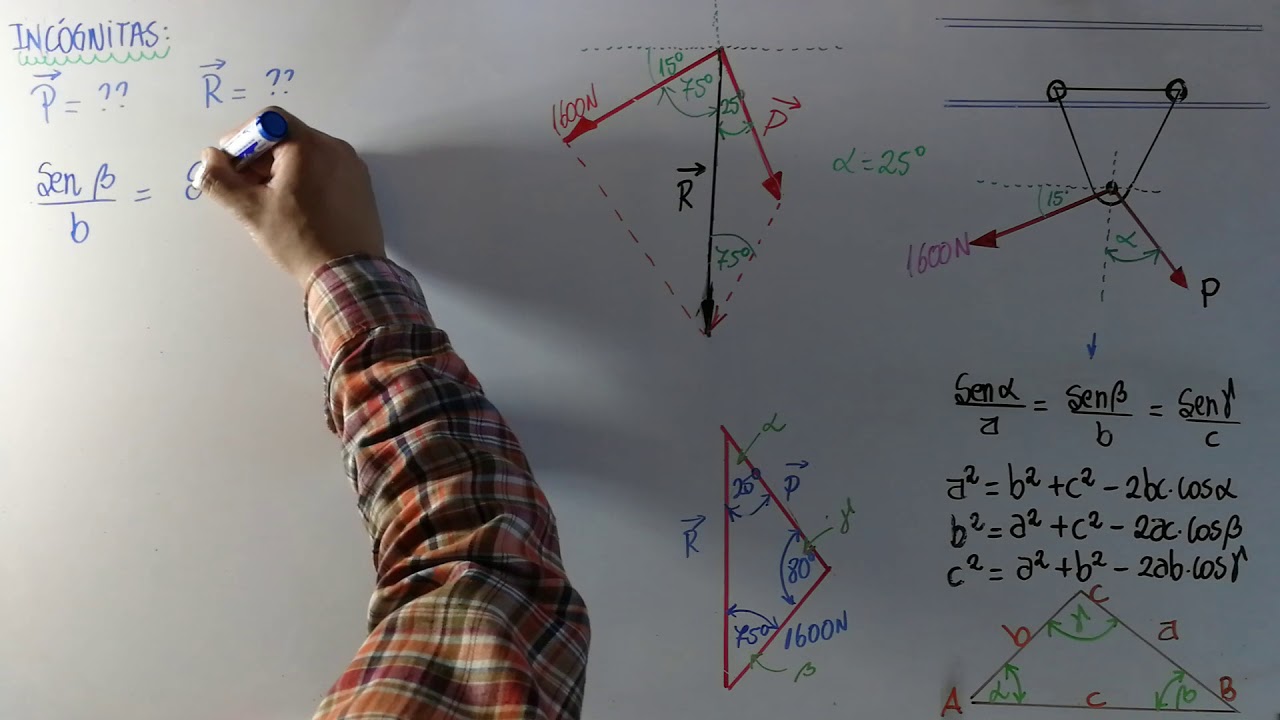 INCÓGNITAS:
P = ?? R = ??
Sen β / b =
15°
75°
25°
1600N
P
R
75°
α = 25°
15°
1600N
α
P
Sen α / a = Sen β / b = Sen γ / c
a² = b² + c² - 2bc·cos α
b² = a² + c² - 2ac·cos β
c² = a² + b² - 2ab·cos γ
α
25°
P
γ
R
80°
75°
1600N
β
C
γ
b
a
A
α
c
β
B